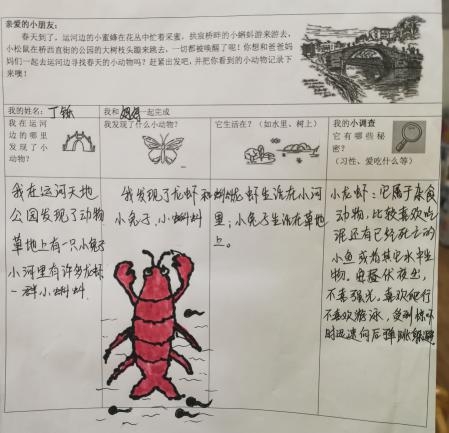 亲爱的小朋友:
春天到了,运河边的小蜜蜂在花丛中忙着采蜜,拱宸桥畔的小蝌蚪游来游去,
小松鼠在桥西直街的公园的大树枝头蹦来跳去,一切都被唤醒了呢!你想和爸爸妈
妈们一起去运河边寻找春天的小动物吗?赶紧出发吧,并把你看到的小动物记录下
来噢!
我的姓名:丁
我和妈妈一起完成
我在运河
边的哪里
发现了小
动物?
我发现了什么小动物?
它生活在?(如水里、树上)
我的小调查
它有哪些秘
密?
(习性、爱吃什么等)
我在运河天地
公园发现了动物
草地上有一只小兔子
小河里有许多龙虾
一群小蝌蚪
我发现了龙虾和
小兔子,小蝌蚪
虾生活在小河
里;小兔子生活在草地
上。
小龙虾:它属于杂食
动物,比较喜欢吃
泥还有已经死亡的
小鱼或者其它水中生
物。昼伏夜出,
不喜强光,喜欢爬行
不喜欢游泳,受到惊吓
时迅速向后弹跳躲避